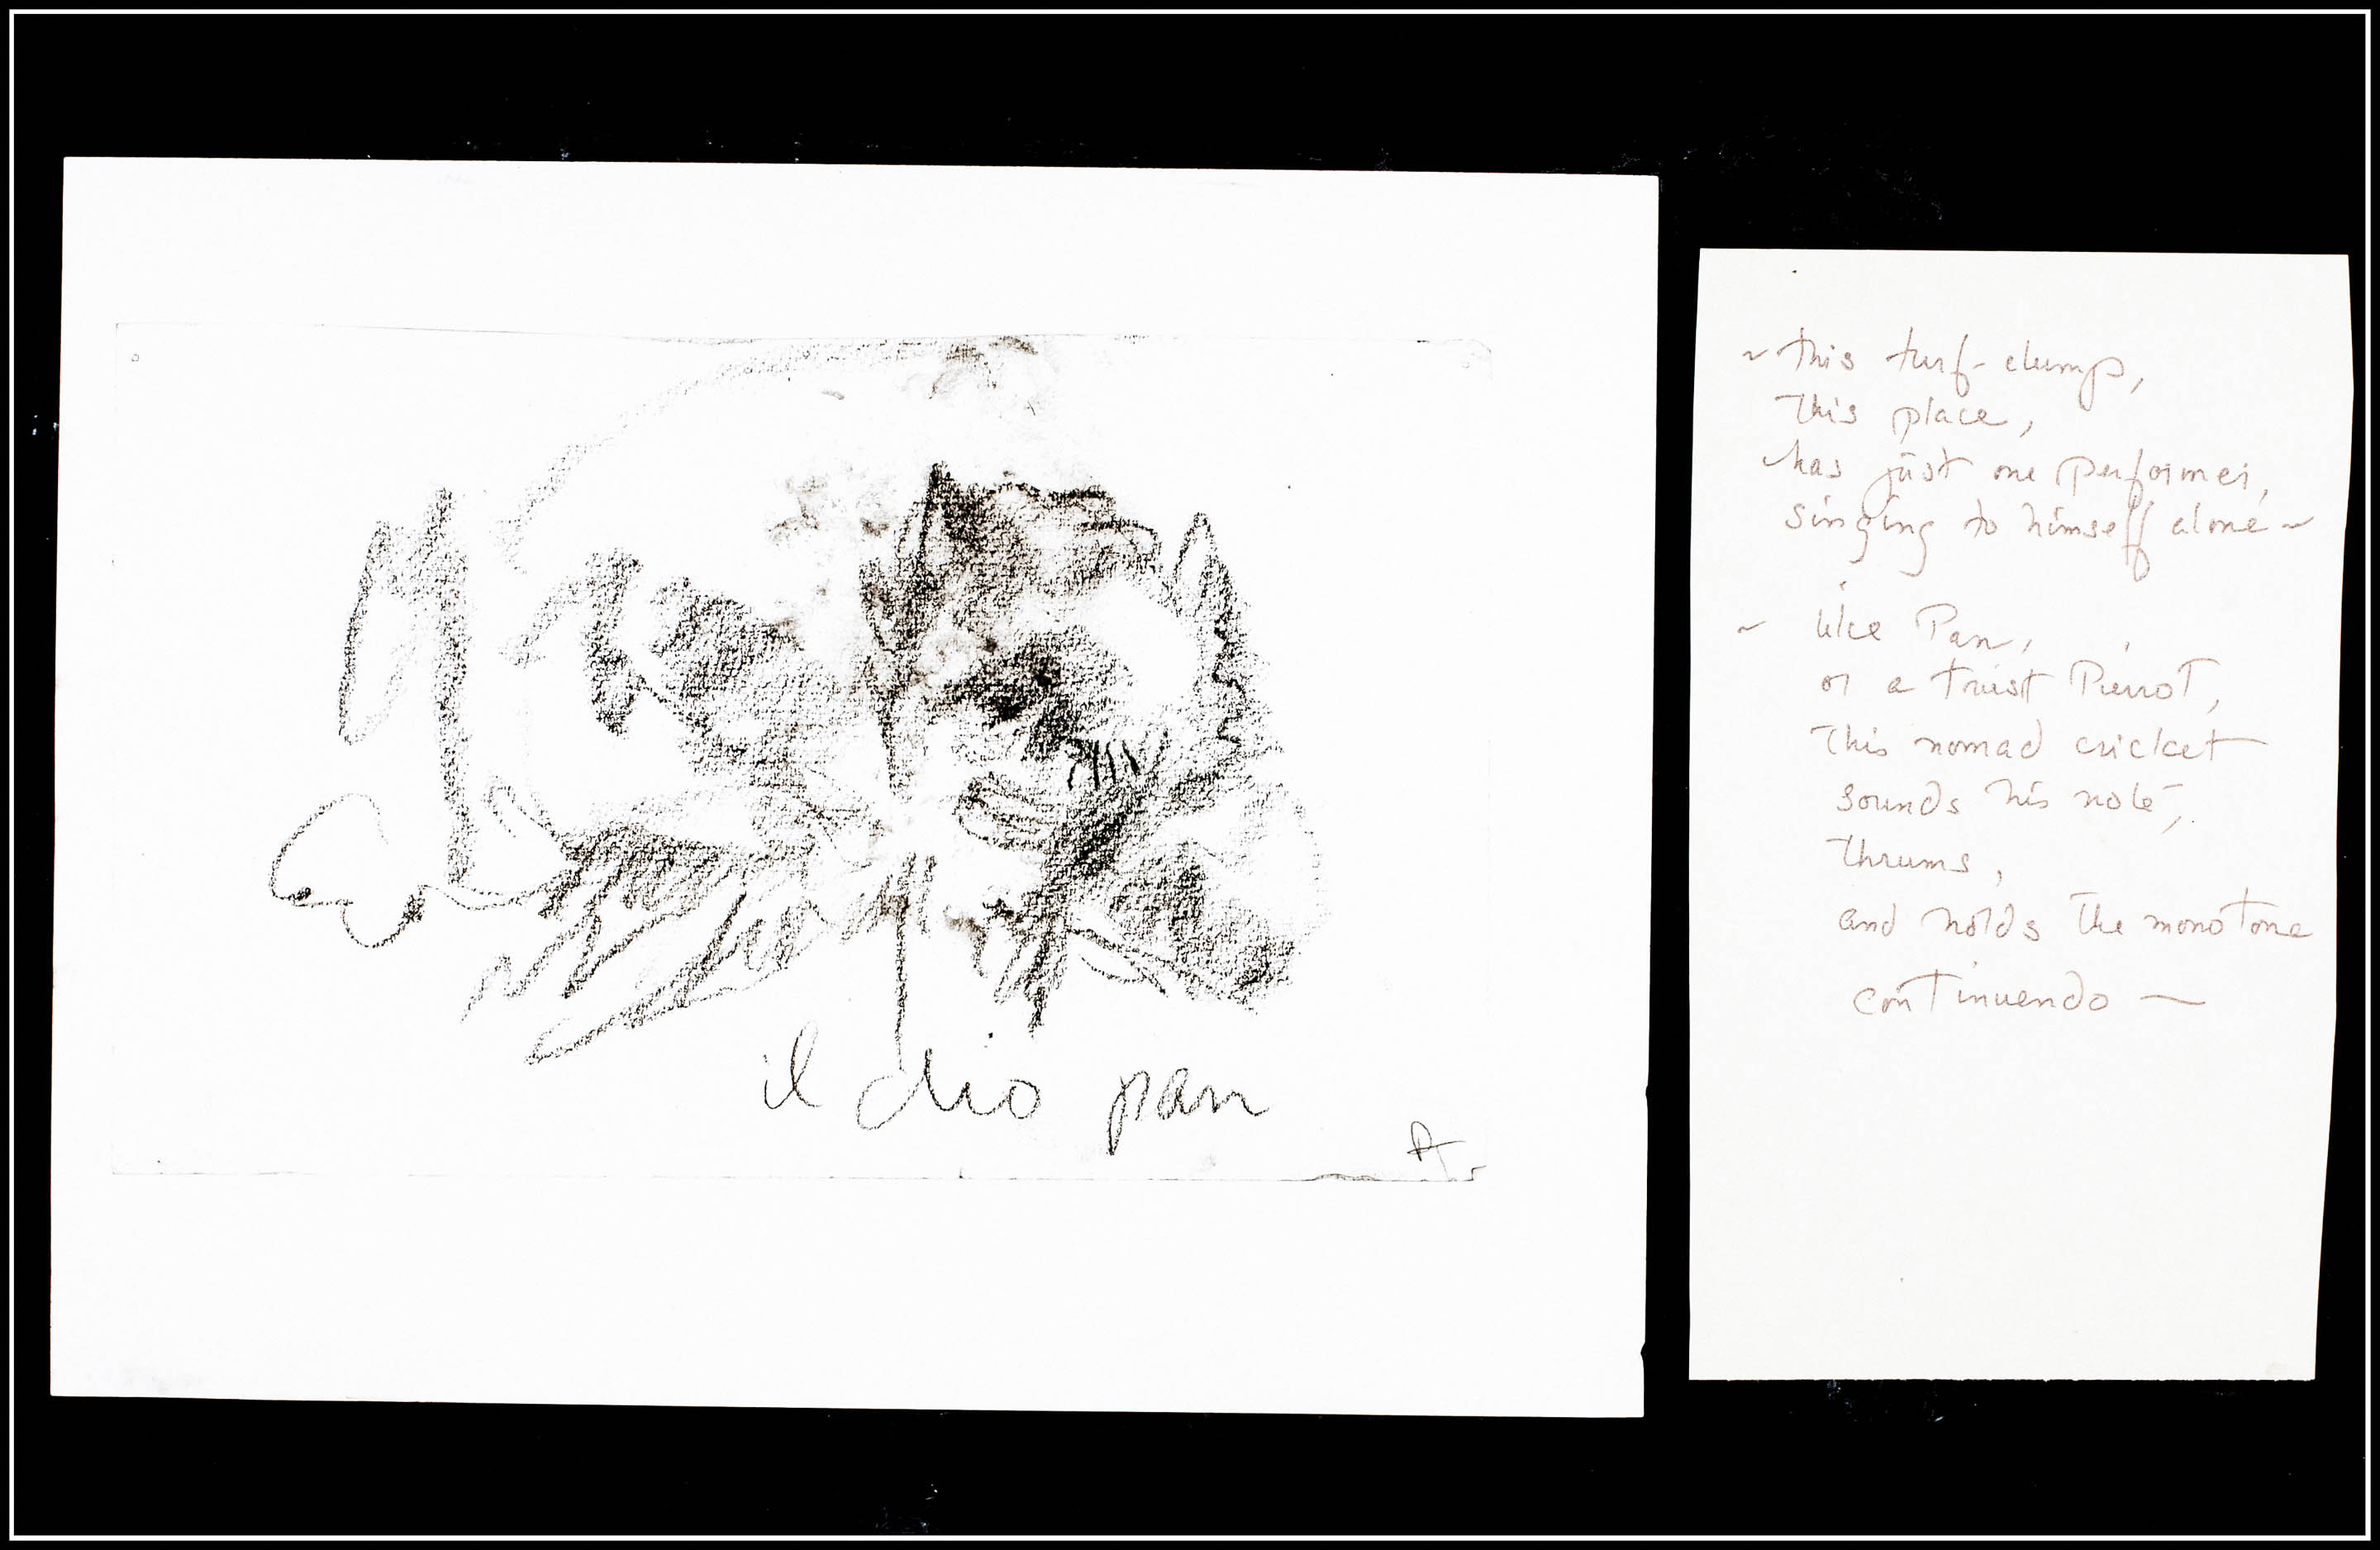 il dio pan
~ this turf-clump,
this place,
has just one performer,
singing to himself alone ~
~ like Pan,
or a triest Pierrot,
this nomad cricket
sounds his note,
thrums,
and holds the monotone
continuendo —